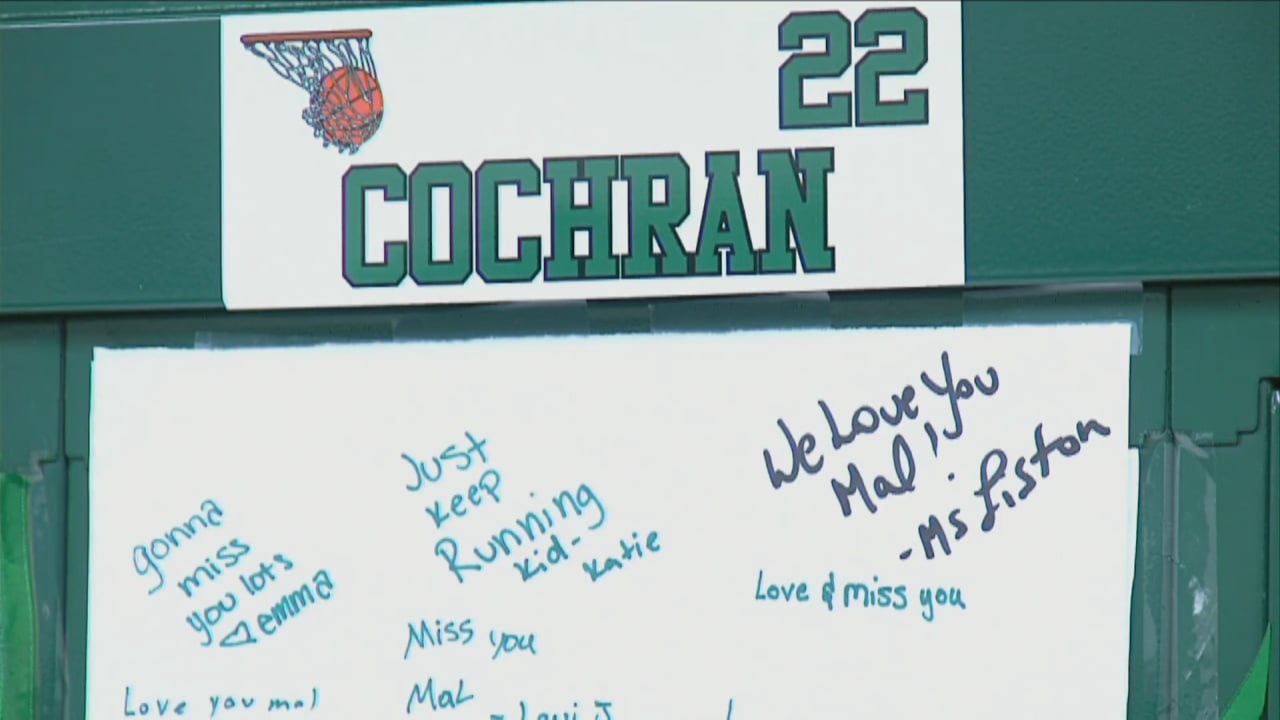 22
COCHRAN
We Love You
Mal!
- Ms Liston
Just
keep
Running
kid-
katie
gonna
miss
you lots
♡ emma
Love & miss you
Miss you
Mal
Love you mal